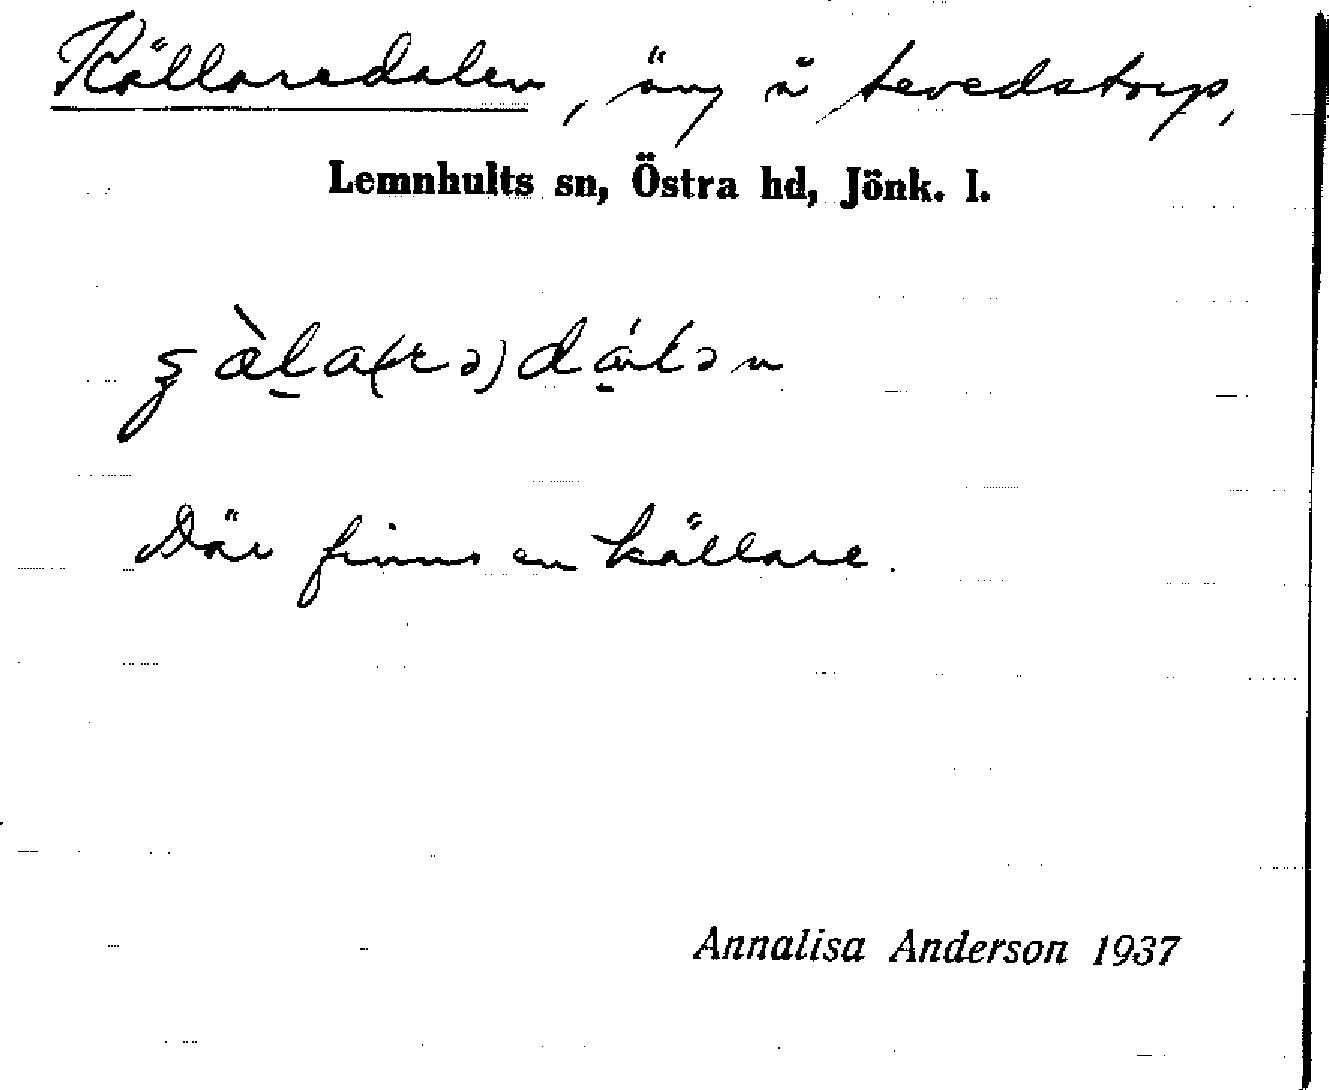 Källaredalen, äng å Levedstorp,
Lemnhults sn, Östra hd, Jönk. l.
Där finns en källare.
Annalisa Anderson 1937